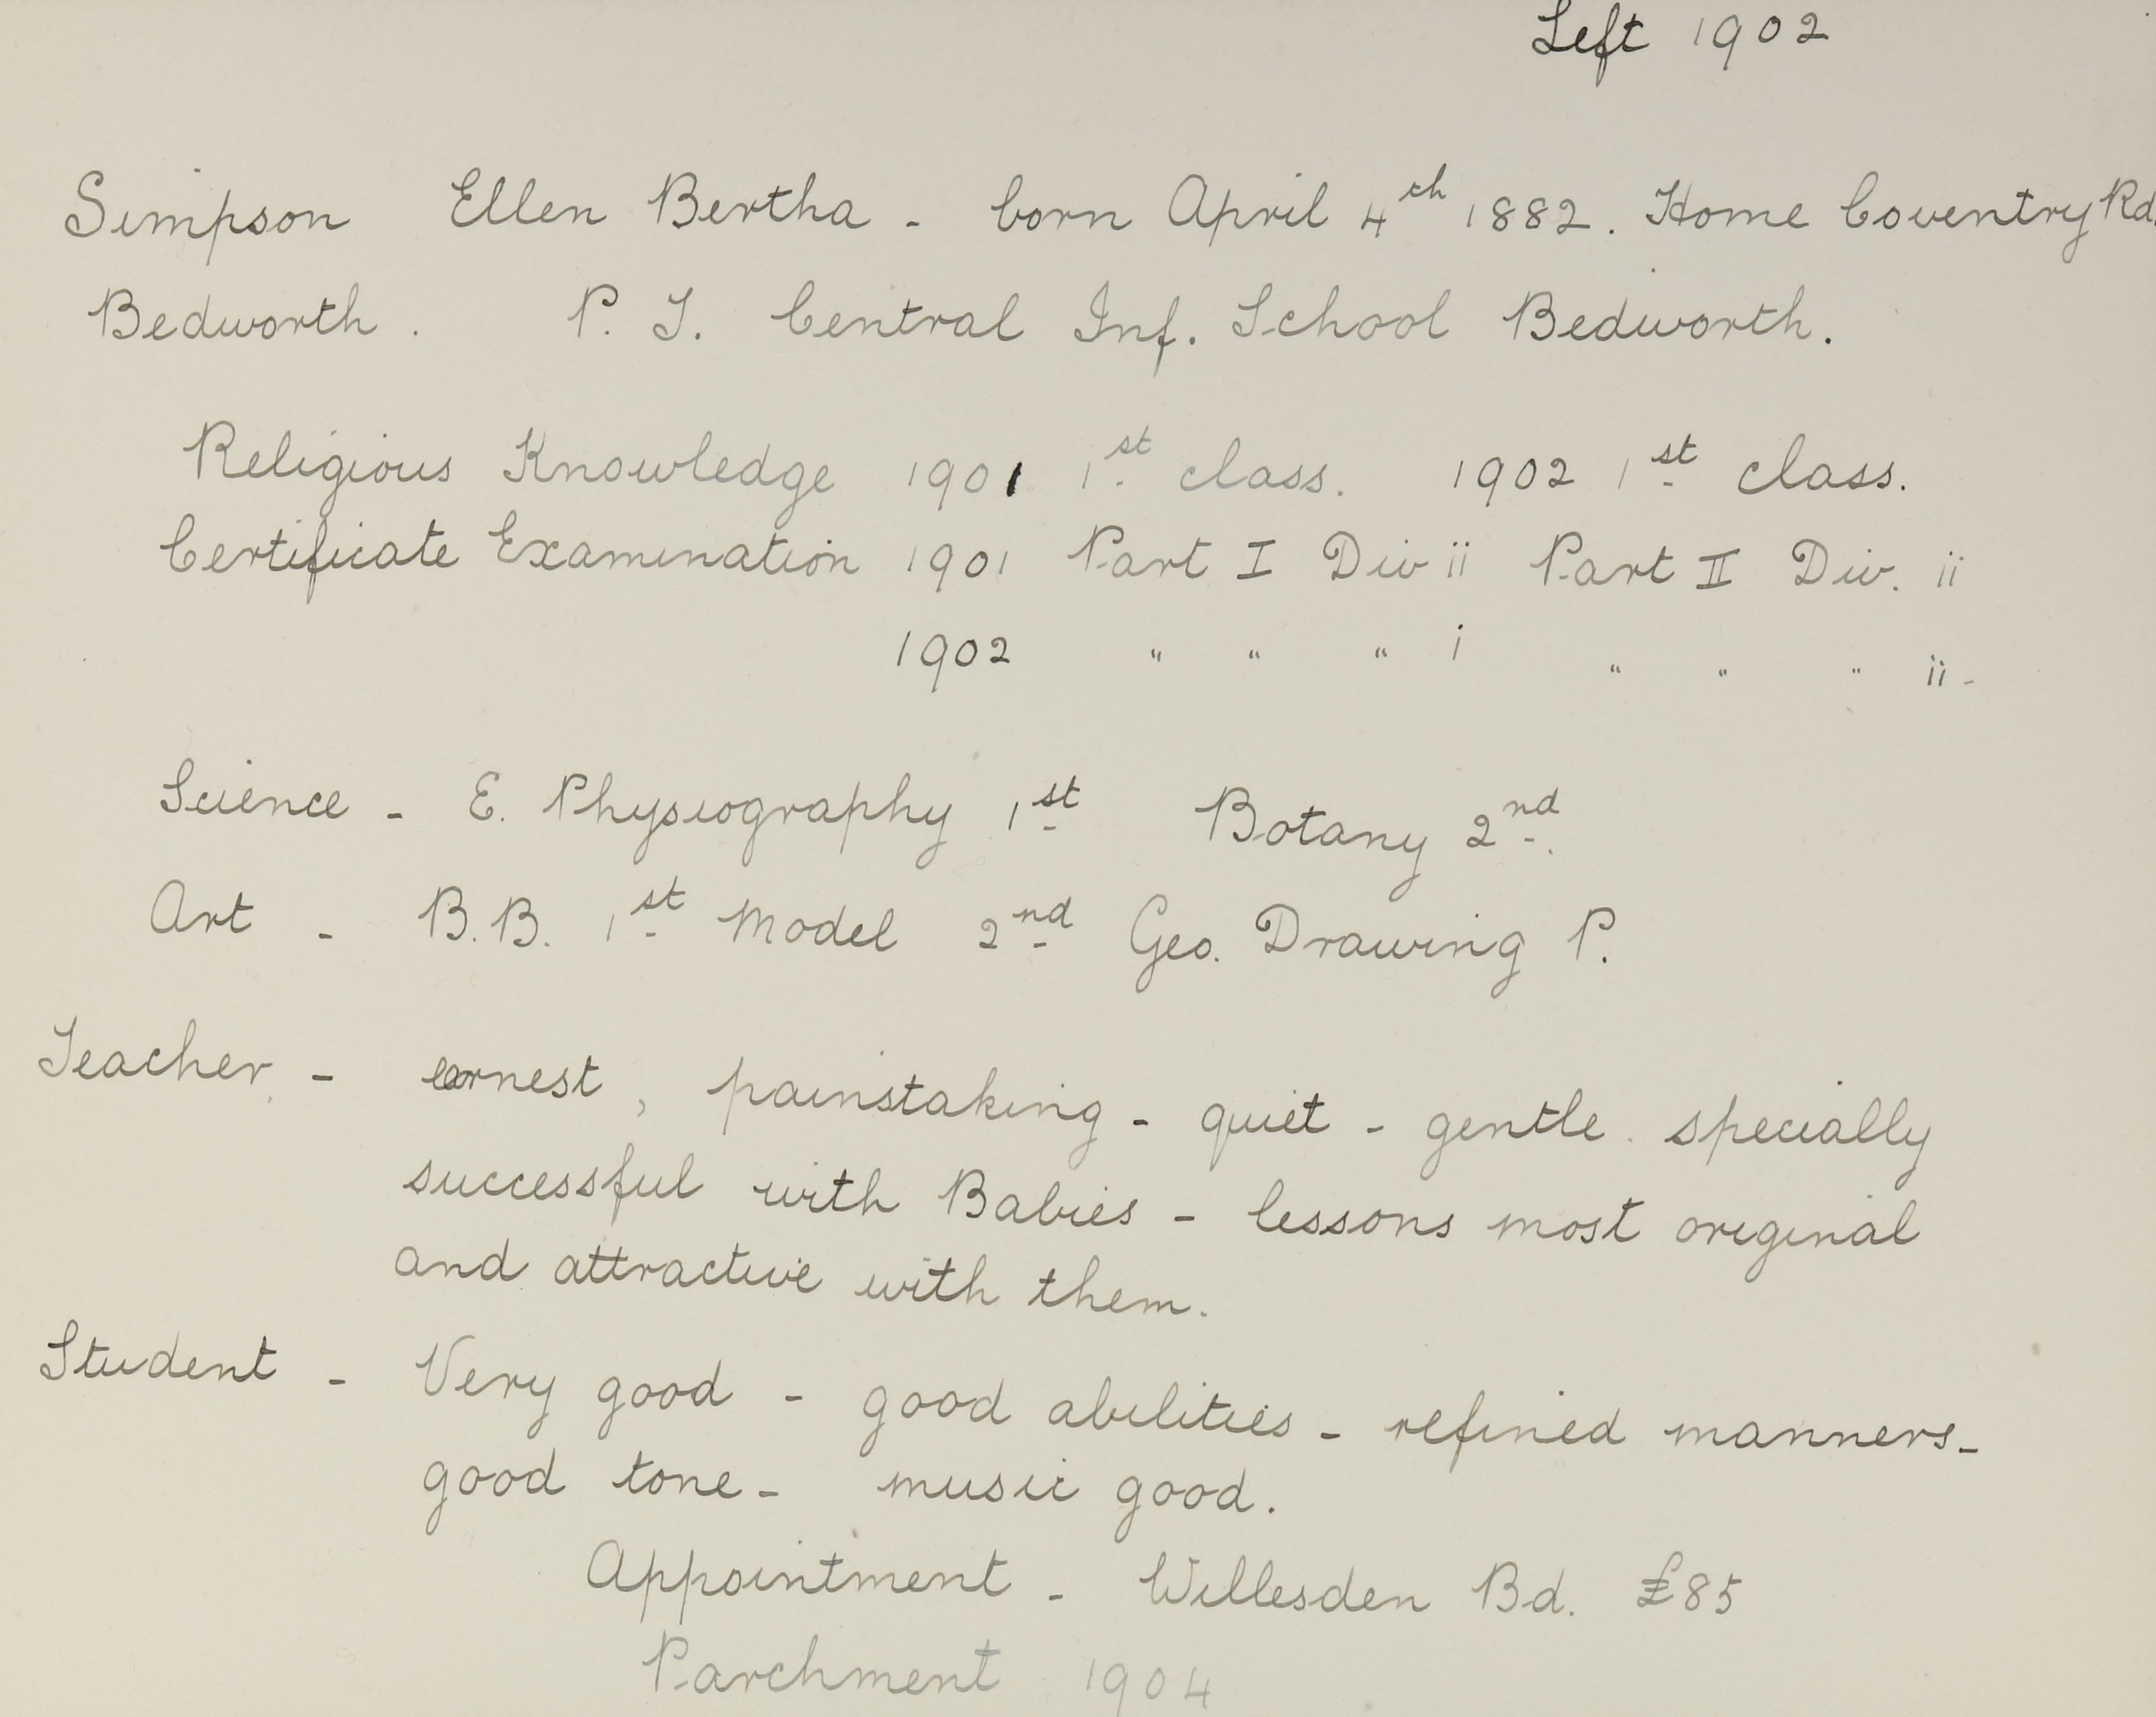 Left 1902
Simpson Ellen Bertha - born April 4th 1882. Home Coventry Rd.
Bedworth. P. T. Central Inf. School Bedworth.
Religious Knowledge 1901 1st class. 1902 1st class.
Certificate Examination 1901 Part I Div ii Part II Div. ii
1902 " " " i " " " ii -
Science - E. Physiography 1st Botany 2nd.
Art - B.B. 1st Model 2nd Geo. Drawing P.
Teacher - earnest, painstaking - quiet - gentle. specially
successful with Babies - lessons most original
and attractive with them.
Student - Very good - good abilities - refined manners -
good tone - music good.
Appointment - Willesden Bd. £85
Parchment 1904